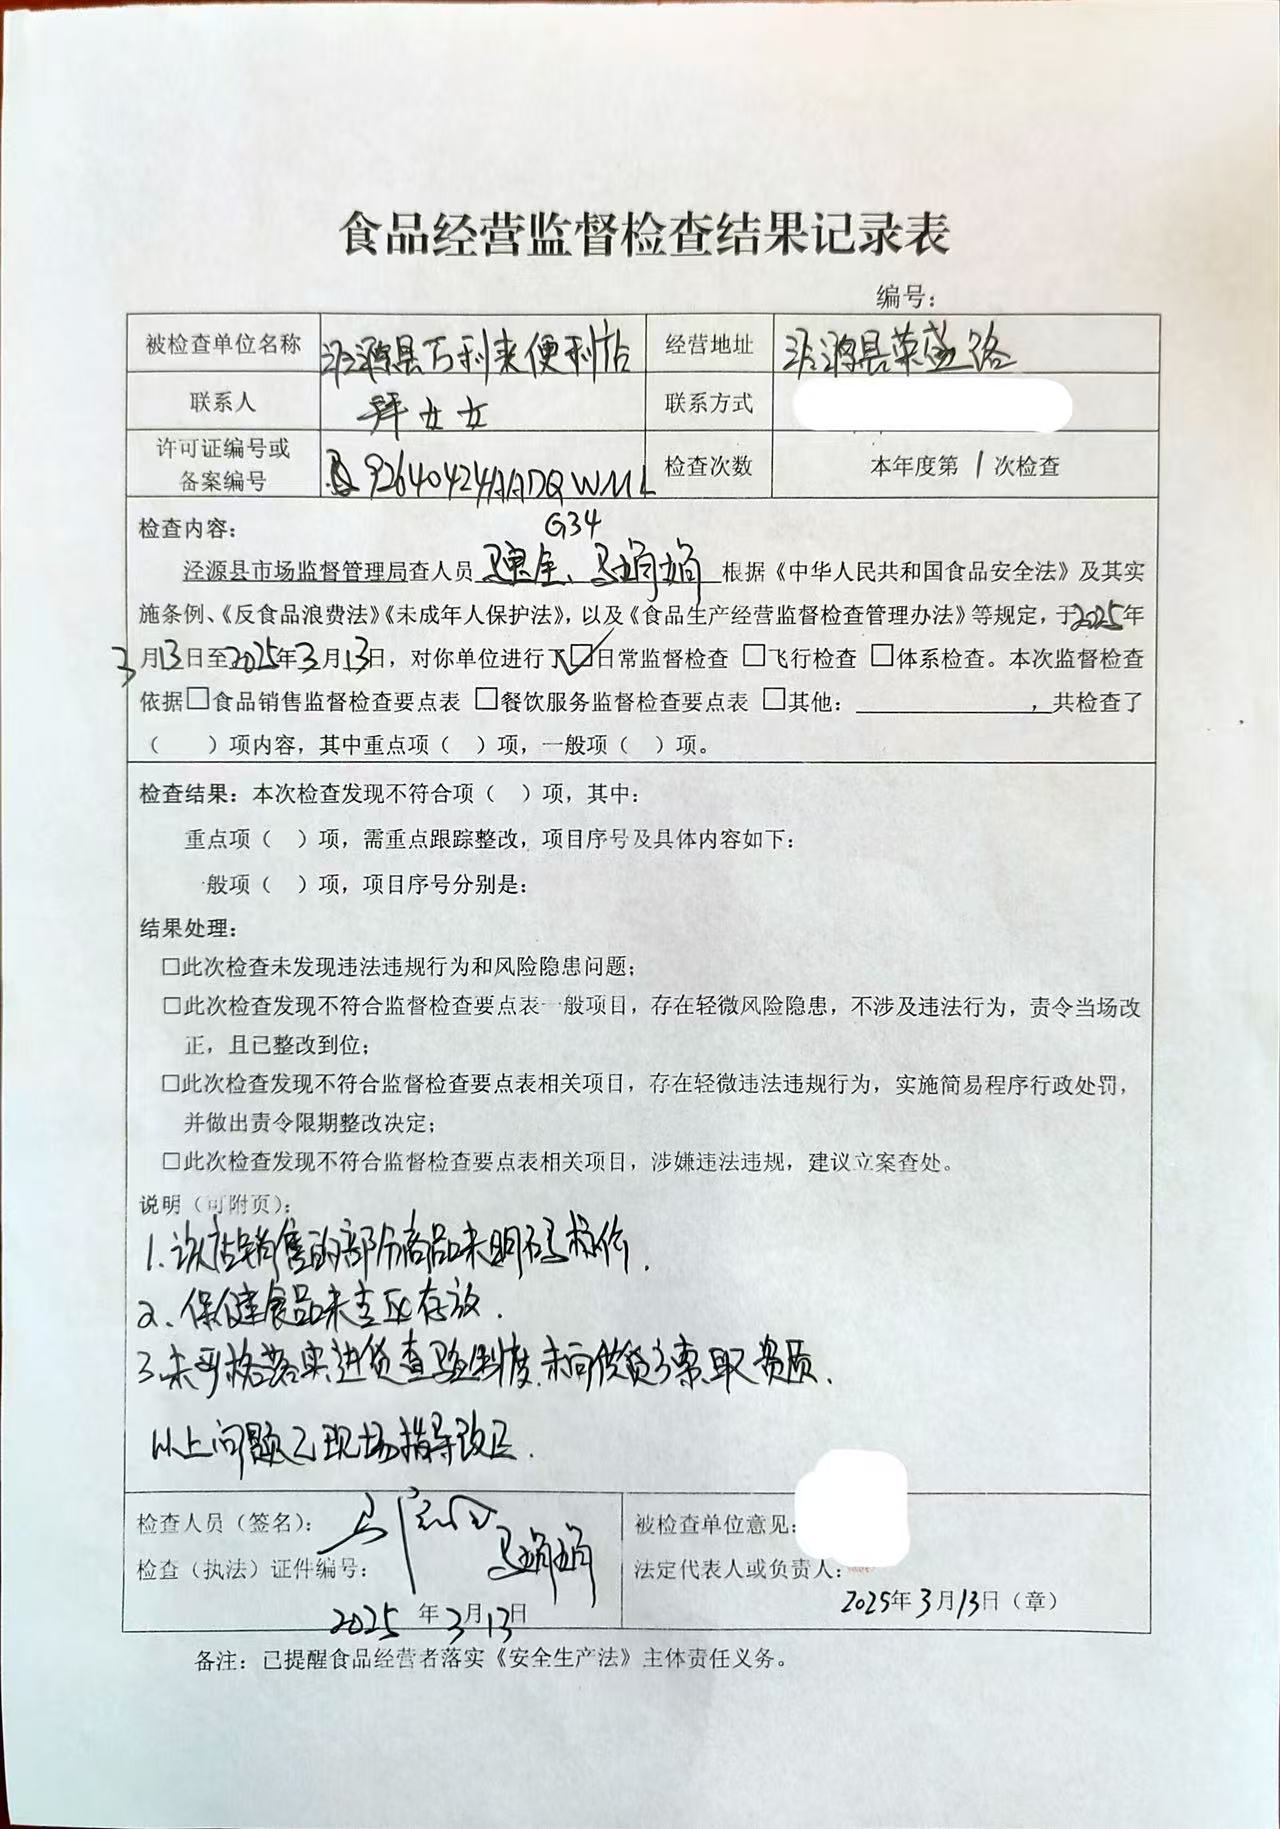 食品经营监督检查结果记录表
编号：
被检查单位名称 泾源县万利来便利店 经营地址 泾源县荣盛路
联系人 拜女女 联系方式
许可证编号或 检查次数 本年度第1次检查
备案编号 92640424MADQWML
G34
检查内容：
泾源县市场监督管理局查人员 马惠全、马娟娟 根据《中华人民共和国食品安全法》及其实
施条例、《反食品浪费法》《未成年人保护法》，以及《食品生产经营监督检查管理办法》等规定，于2025年
3月13日至2025年3月13日，对你单位进行了☑日常监督检查 □飞行检查 □体系检查。本次监督检查
依据□食品销售监督检查要点表 □餐饮服务监督检查要点表 □其他：，共检查了
（ ）项内容，其中重点项（ ）项，一般项（ ）项。
检查结果：本次检查发现不符合项（ ）项，其中：
重点项（ ）项，需重点跟踪整改，项目序号及具体内容如下：
一般项（ ）项，项目序号分别是：
结果处理：
□此次检查未发现违法违规行为和风险隐患问题；
□此次检查发现不符合监督检查要点表一般项目，存在轻微风险隐患，不涉及违法行为，责令当场改
正，且已整改到位；
□此次检查发现不符合监督检查要点表相关项目，存在轻微违法违规行为，实施简易程序行政处罚，
并做出责令限期整改决定；
□此次检查发现不符合监督检查要点表相关项目，涉嫌违法违规，建议立案查处。
说明（可附页）：
1.该店销售的部分商品未明码标价.
2、保健食品未专区存放.
3.未严格落实进货查验制度,未向供货方索取资质.
以上问题已现场指导改正.
检查人员（签名）： 马娟娟 被检查单位意见：
检查（执法）证件编号： 法定代表人或负责人：
2025年3月13日 2025年3月13日（章）
备注：已提醒食品经营者落实《安全生产法》主体责任义务。